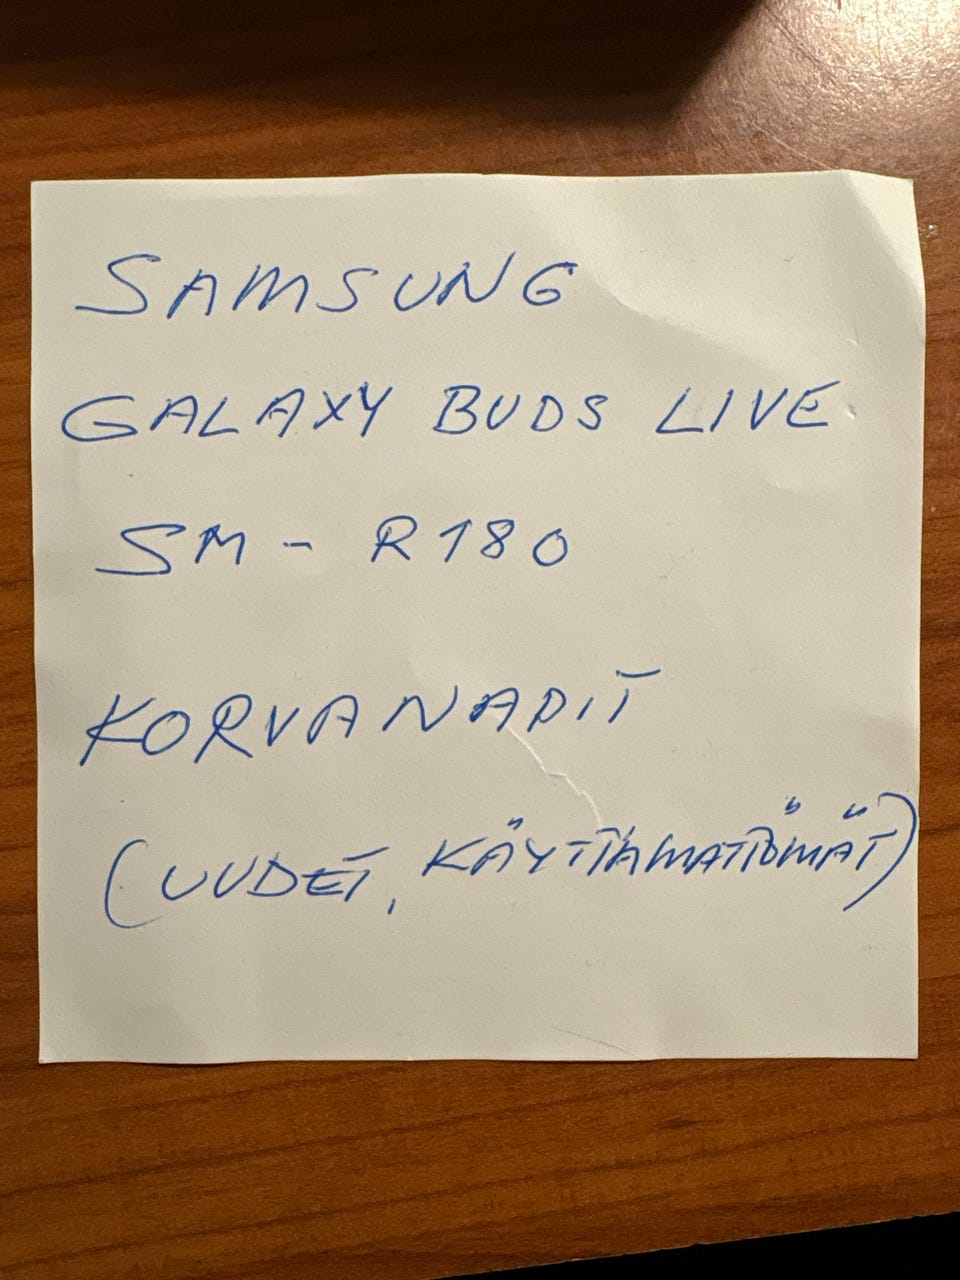 SAMSUNG
GALAXY BUDS LIVE
SM - R180
KORVANAPIT
(UUDET, KÄYTTAMATTÖMÄT)